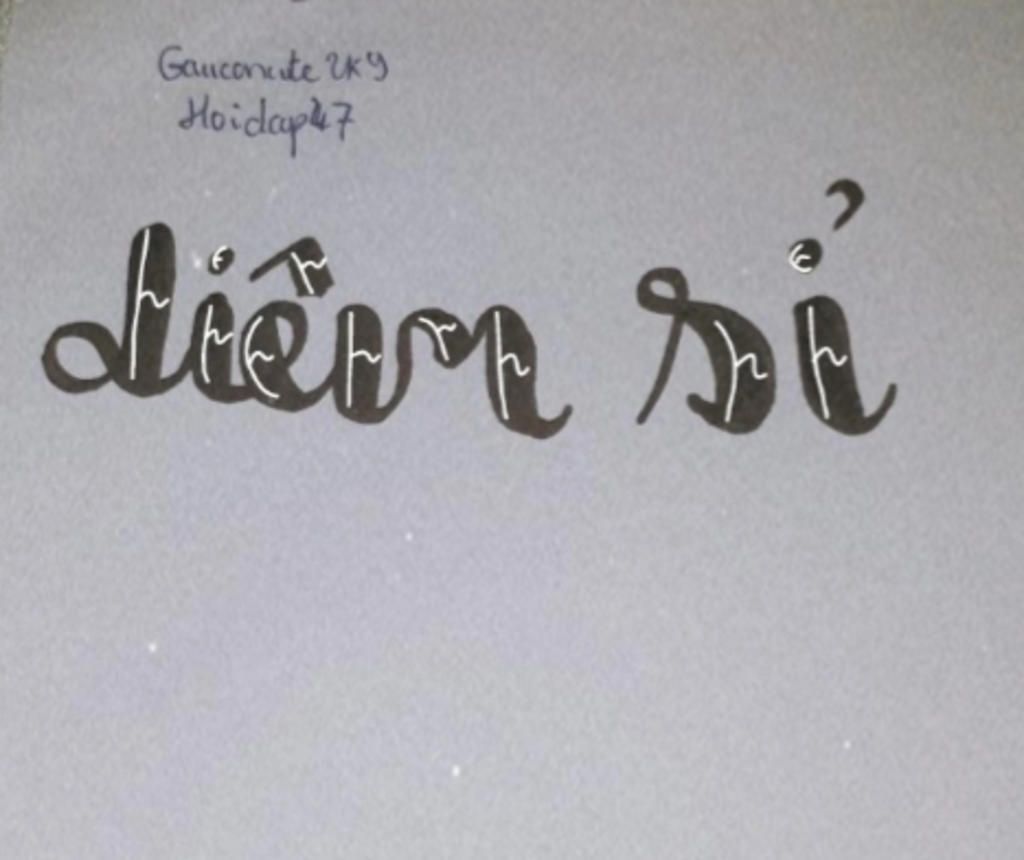 Gauconcute 2k9
Hoidap247
diễm sỉ